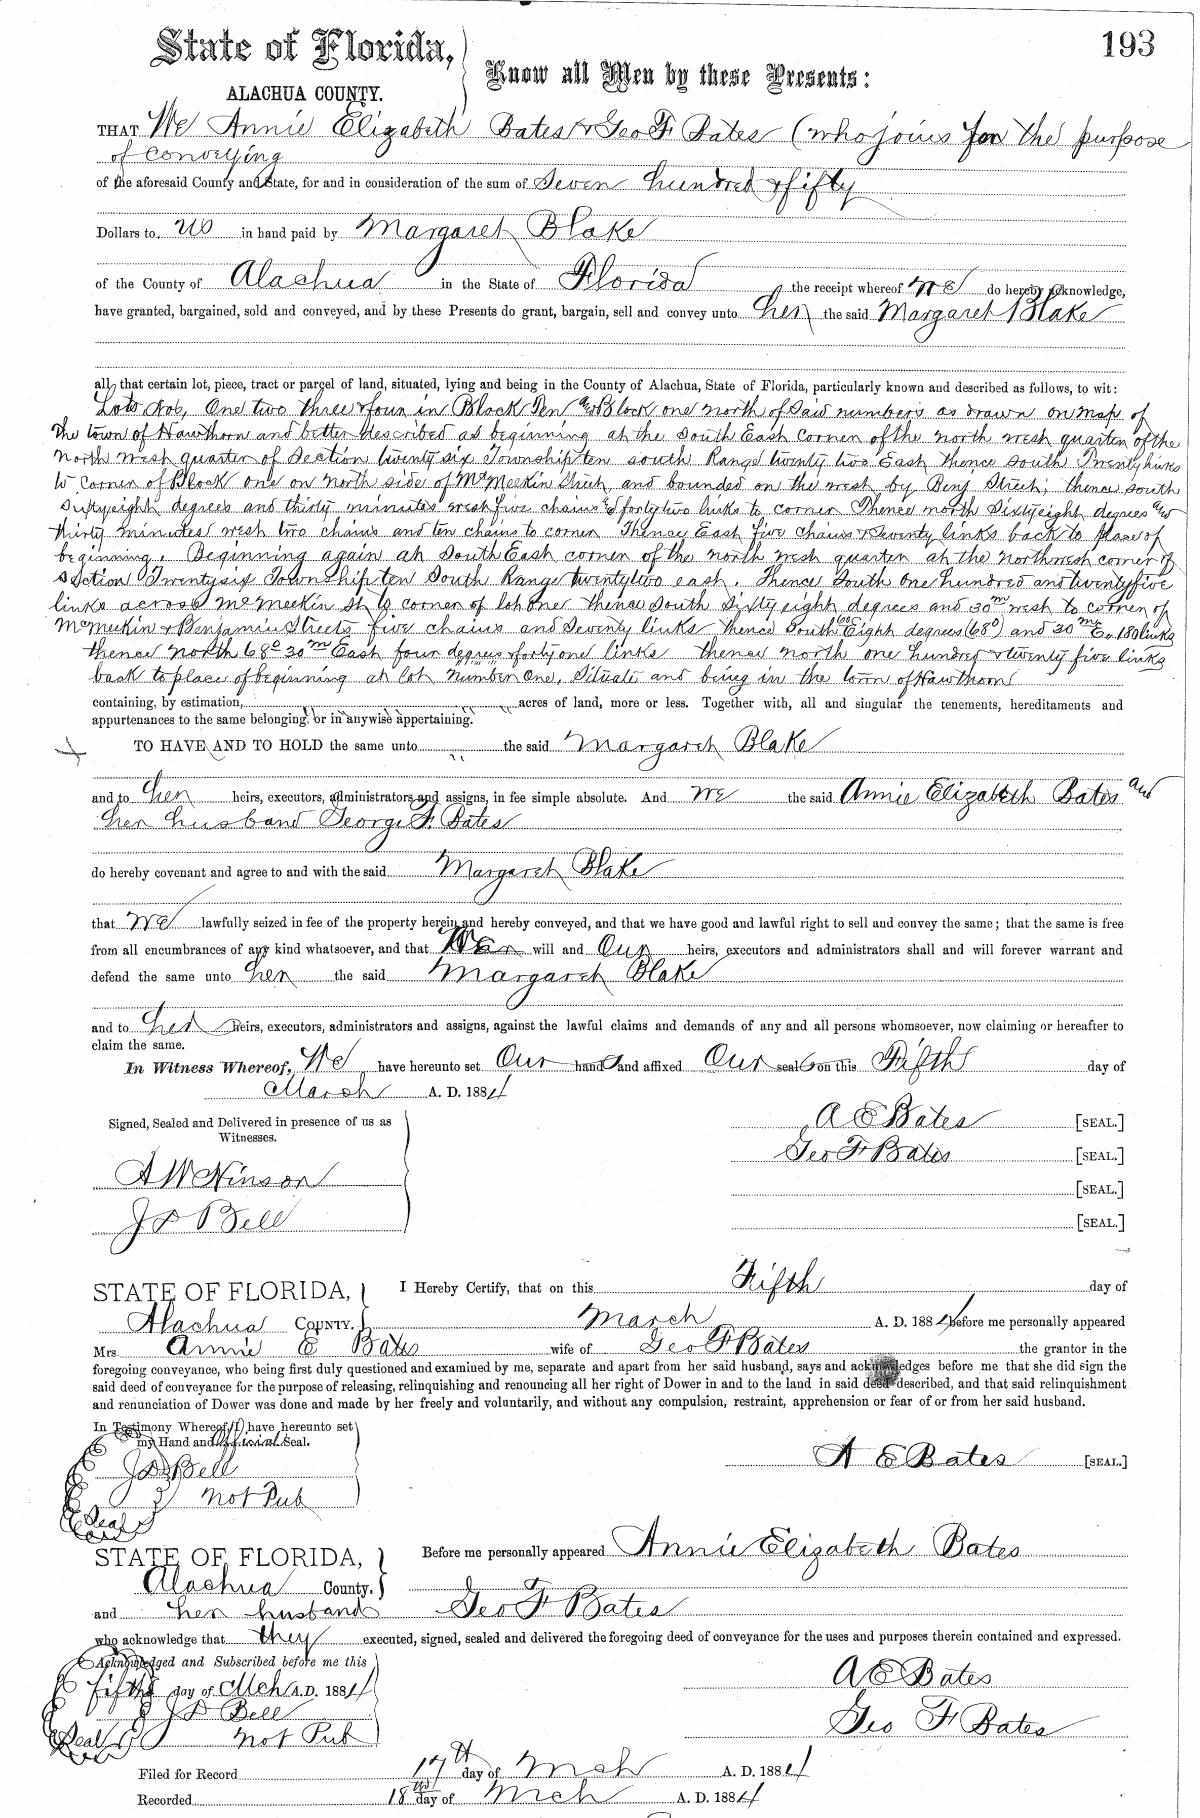 193
State of Florida,
ALACHUA COUNTY.
Know all Men by these Presents:
THAT We Annie Elizabeth Bates & Geo F Bates (who joins for the purpose
of conveying
of the aforesaid County and State, for and in consideration of the sum of Seven hundred & fifty
Dollars to us in hand paid by Margaret Blake
of the County of Alachua in the State of Florida the receipt whereof we do hereby acknowledge,
have granted, bargained, sold and conveyed, and by these Presents do grant, bargain, sell and convey unto her the said Margaret Blake
all that certain lot, piece, tract or parcel of land, situated, lying and being in the County of Alachua, State of Florida, particularly known and described as follows, to wit:
Lots Nos, One two three & four in Block Ten and Block one north of Said numbers as drawn on map of
the town of Hawthorn and better described as beginning at the South East corner of the north west quarter of the
North west quarter of Section twenty six Township ten south Range twenty two East thence south Twenty links
to corner of Block one on north side of McMeekin Street, and bounded on the west by Benj Street; thence south
Sixtyeight degrees and thirty minutes west five chains & fortytwo links to corner Thence north Sixtyeight degrees and
thirty minutes west two chains and ten chains to corner Thence East five chains & Seventy links back to place of
beginning. Beginning again at South East corner of the north west quarter at the Northwest corner of
Section Twentysix Township ten South Range twentytwo east. Thence South one hundred and twentyfive
links across McMeekin St to corner of lot one thence South Sixty eight degrees and 30m west to corner of
McMeekin & Benjamin Streets five chains and Seventy links thence South Eight degrees (68°) and 30m E. 180 links
thence north 68° 30m East four degrees & forty one links thence north one hundred & twenty five links
back to place of beginning at lot number One, Situate and being in the town of Hawthorn
containing, by estimation, acres of land, more or less. Together with, all and singular the tenements, hereditaments and
appurtenances to the same belonging, or in anywise appertaining.
TO HAVE AND TO HOLD the same unto the said Margaret Blake
and to her heirs, executors, administrators and assigns, in fee simple absolute. And we the said Annie Elizabeth Bates and
her husband George F. Bates
do hereby covenant and agree to and with the said Margaret Blake
that we lawfully seized in fee of the property herein and hereby conveyed, and that we have good and lawful right to sell and convey the same; that the same is free
from all encumbrances of any kind whatsoever, and that will and Our heirs, executors and administrators shall and will forever warrant and
defend the same unto her the said Margaret Blake
and to her heirs, executors, administrators and assigns, against the lawful claims and demands of any and all persons whomsoever, now claiming or hereafter to
claim the same.
In Witness Whereof, We have hereunto set Our hands and affixed Our seals on this Fifth day of
March A. D. 1884
Signed, Sealed and Delivered in presence of us as
Witnesses.
A E Bates [SEAL.]
Geo F Bates [SEAL.]
A W Hinson [SEAL.]
J D Bell [SEAL.]
STATE OF FLORIDA, I Hereby Certify, that on this Fifth day of
Alachua COUNTY. March A. D. 1884 before me personally appeared
Mrs Annie E Bates wife of Geo F Bates the grantor in the
foregoing conveyance, who being first duly questioned and examined by me, separate and apart from her said husband, says and acknowledges before me that she did sign the
said deed of conveyance for the purpose of releasing, relinquishing and renouncing all her right of Dower in and to the land in said deed described, and that said relinquishment
and renunciation of Dower was done and made by her freely and voluntarily, and without any compulsion, restraint, apprehension or fear of or from her said husband.
In Testimony Whereof, I have hereunto set
my Hand and Official Seal.
J D Bell
A E Bates [SEAL.]
Not Pub
Seal
STATE OF FLORIDA, Before me personally appeared Annie Elizabeth Bates
Alachua County.
and her husband Geo F Bates
who acknowledge that they executed, signed, sealed and delivered the foregoing deed of conveyance for the uses and purposes therein contained and expressed.
Acknowledged and Subscribed before me this
fifth day of Mch A.D. 1884
A E Bates
J D Bell
Geo F Bates
Seal Not Pub
Filed for Record 17th day of Mch A. D. 1884
Recorded 18th day of Mch A. D. 1884